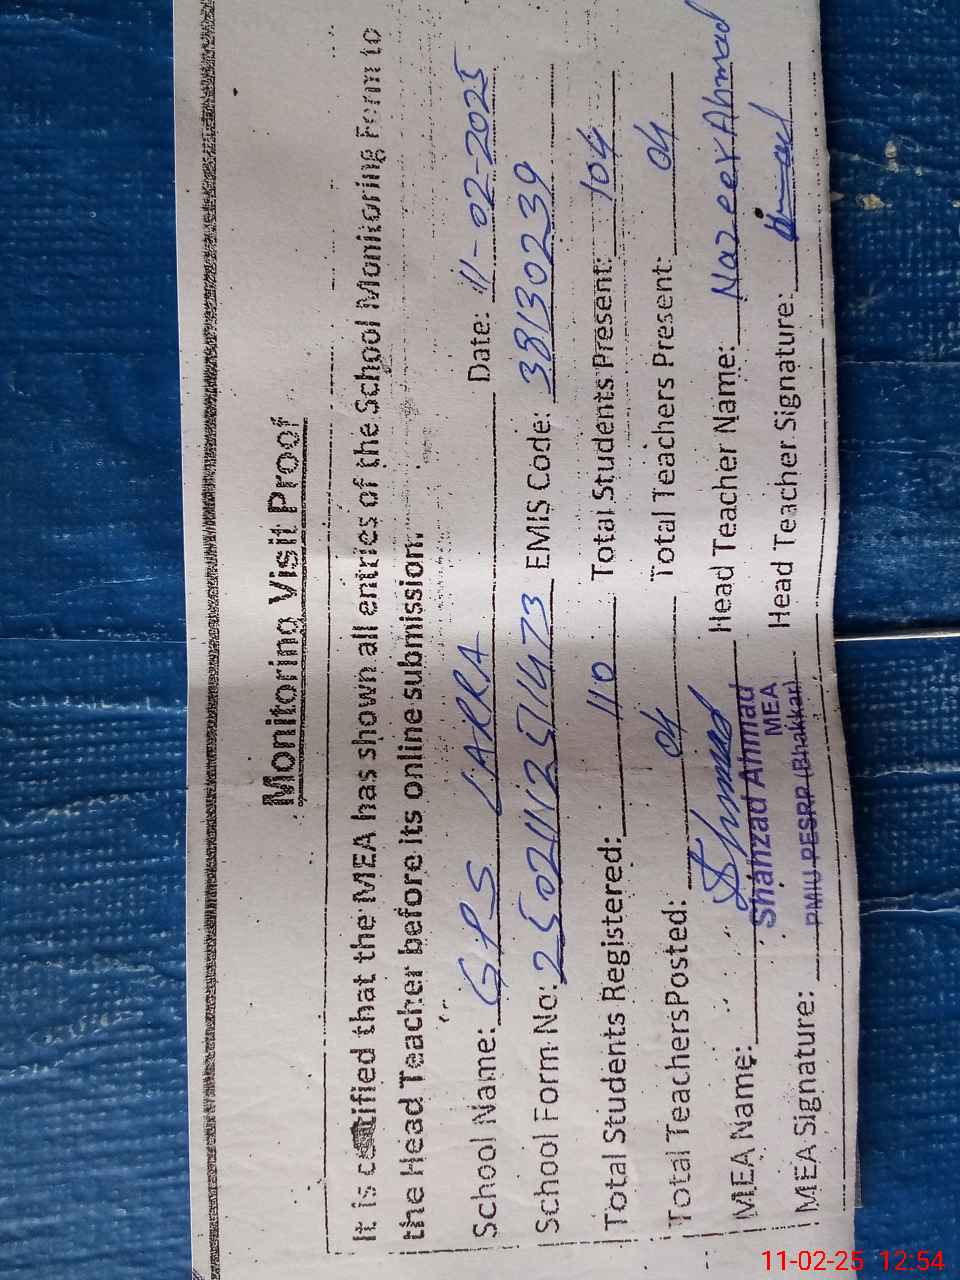 Monitoring Visit Proof
It is certified that the MEA has shown all entries of the School Monitoring Form to
the Head Teacher before its online submission.
School Name: GPS LARRA Date: 11-02-2025
School Form No: EMIS Code: 38130239
Total Students Registered: 110 Total Students Present: 104
Total Teachers Posted: 04 Total Teachers Present: 04
MEA Name: Shahzad Ahmad Head Teacher Name: Nazeer Ahmad
MEA
MEA Signature: PMIU PESRP (Bhakkar) Head Teacher Signature:
11-02-25 12:54